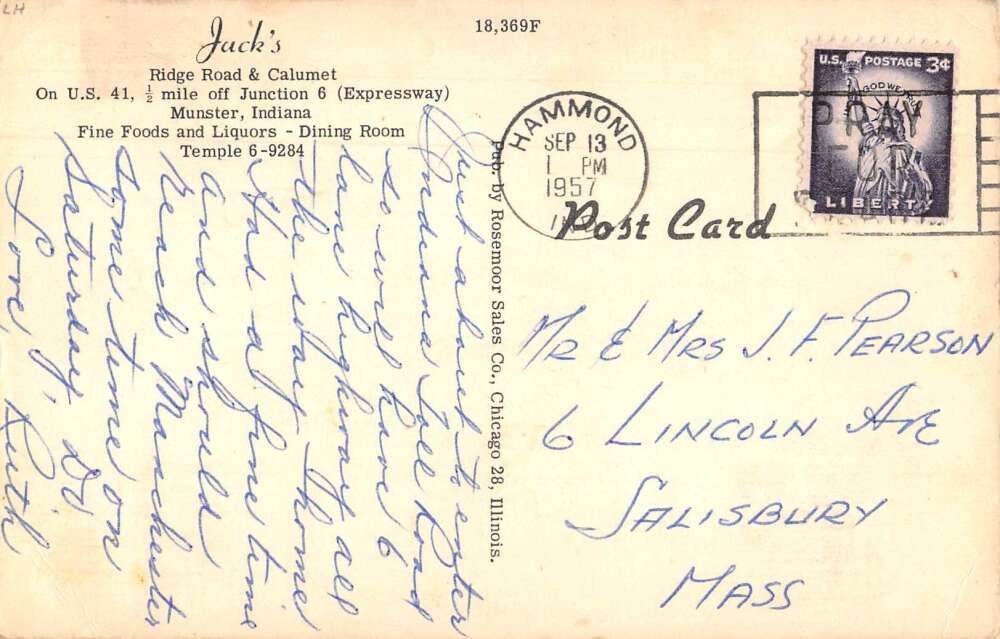 LH
18,369F
Jack's
Ridge Road & Calumet
On U.S. 41, ½ mile off Junction 6 (Expressway)
Munster, Indiana
Fine Foods and Liquors - Dining Room
Temple 6-9284
Just about to enter
Indiana Toll Road
so will have 6
lane highway all
the way home
Had a fine time
and should
reach Manchester
some time on
Saturday
Love, Ruth
Pub. by Rosemoor Sales Co., Chicago 28, Illinois.
HAMMOND
SEP 13
1 PM
1957
U.S. POSTAGE 3¢
IN GOD WE TRUST
LIBERTY
PRAY
Post Card
MR & MRS J. F. PEARSON
6 LINCOLN AVE
SALISBURY
MASS